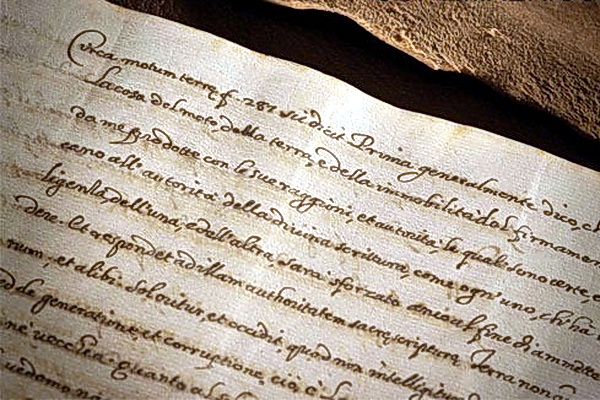 Circa motum terrę f. 287 sic dicit. Prima generalmente dico, ch
la cosa del moto della terra, e della immobilità del firmamen
da me prodotte con le sue raggioni, et autorità, le quali sono certe, e
cano all' autorità della divina scrittura, come ogn'uno, ch'ha
ligenza dell'una, e dell'altra, sarà sforzato anco al fine d'ammette
dere. Et respondet ad illam authoritatem sacrę scripturę Terra non
num, et alibi Sol oritur, et occidit, quod non intelligitur
de generatione, et corruptione, cioè
né vecchia. quanto al sol